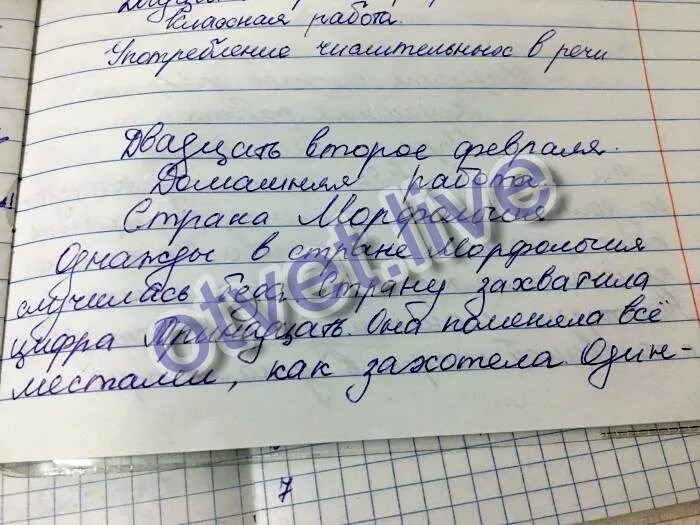 Классная работа.
Употребление числительных в речи
Двадцать второе февраля.
Домашняя работа.
Страна Морфология
Однажды в стране Морфология
случилась беда. Страну захватила
цифра Тринадцать. Она поменяла всё
местами, как захотела. Один-
7
otvet.live